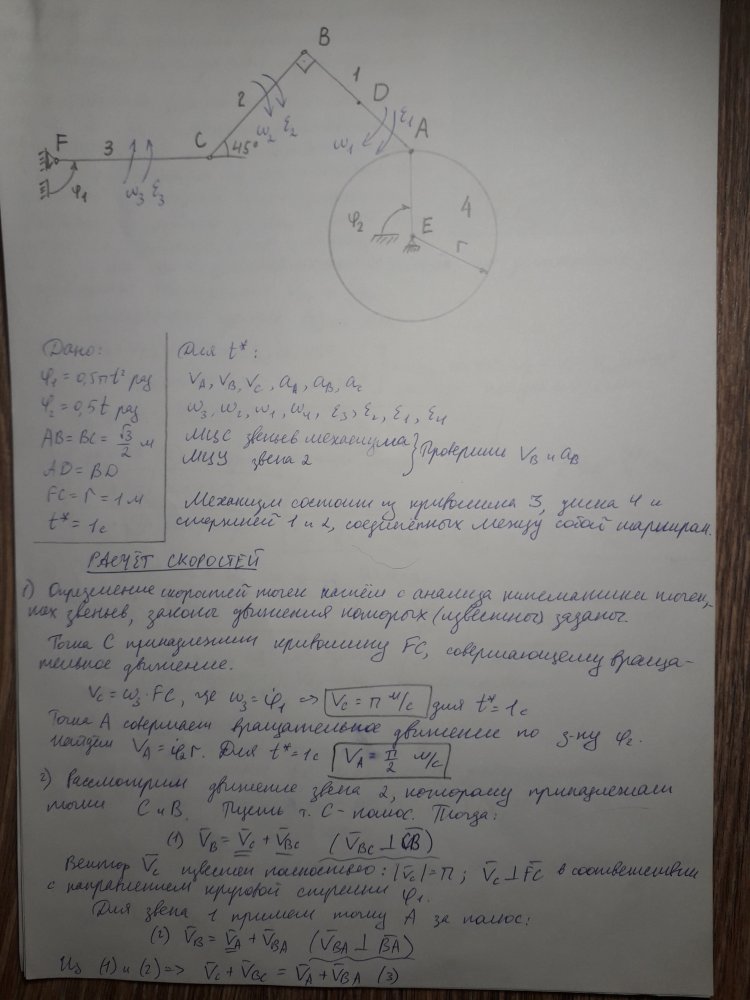 B
1
D
2
ω₂ ε₂
ε₁
ω₁
A
F
3
C
45°
φ₁
ω₃ ε₃
φ₂
4
E
r
Дано:
φ₁ = 0,5πt² рад
φ₂ = 0,5t рад
AB = BC = √3/2 м
AD = BD
FC = r = 1 м
t* = 1с
Для t*:
V_A, V_B, V_C, a_A, a_B, a_C
ω₃, ω₂, ω₁, ω₄, ε₃, ε₂, ε₁, ε₄
МЦС звеньев механизма
МЦУ звена 2
} Проверить V_B и a_B
Механизм состоит из кривошипа 3, диска 4 и
стержней 1 и 2, соединённых между собой шарнирам.
РАСЧЁТ СКОРОСТЕЙ
1) Определение скоростей точек начнём с анализа кинематики точек,
звеньев, законы движения которых (известны) заданы.
Точка C принадлежит кривошипу FC, совершающему враща-
тельное движение.
V_C = ω₃ · FC, где ω₃ = φ̇₁ => V_C = π м/с для t* = 1с
Точка A совершает вращательное движение по з-ну φ₂.
Найдём V_A = φ̇₂r. Для t* = 1с V_A = π/2 м/с
2) Рассмотрим движение звена 2, которому принадлежат
точки C и B. Пусть т. C - полюс. Тогда:
(1) V̄_B = V̄_C + V̄_BC (V̄_BC ⊥ C̄B̄)
Вектор V̄_C известен полностью: |V̄_C| = π; V̄_C ⊥ F̄C̄ в соответствии
с направлением круговой стрелки φ₁.
Для звена 1 примем точку A за полюс:
(2) V̄_B = V̄_A + V̄_BA (V̄_BA ⊥ B̄Ā)
Из (1) и (2) => V̄_C + V̄_BC = V̄_A + V̄_BA (3)